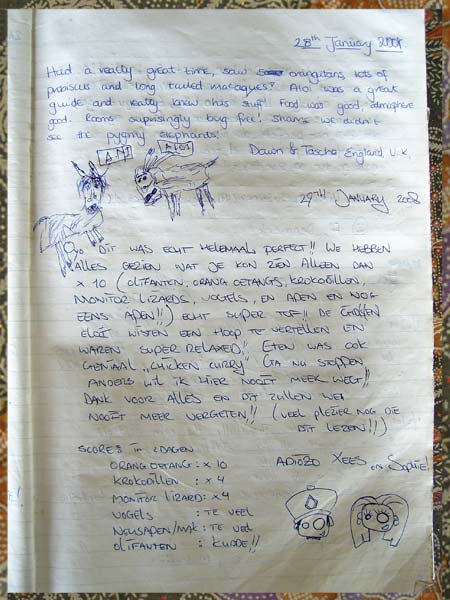 28th January 2008.
Had a really great time, saw orangutans lots of
probiscus and long tailed macaques! Aloi was a great
guide and really knew his stuff! Food was good, atmosphere
good. Rooms suprisingly bug free! Shame we didn't
see the pygmy elephants!
Dawn & Tascha, England, U.K.
ANI
ALOI
29TH JANUARY 2008
DIT WAS ECHT HELEMAAL PERFECT!! WE HEBBEN
ALLES GEZIEN WAT JE KON ZIEN ALLEEN DAN
x 10 (OLIFANTEN, ORANG OETANGS, KROKODILLEN,
MONITOR LIZARDS, VOGELS, EN APEN EN NOG
EENS APEN!!) ECHT SUPER TOF!! DE
WISTEN EEN HOOP TE VERTELLEN EN
WAREN SUPER RELAXED!! ETEN WAS OOK
GENIAAL "CHICKEN CURRY" (GA NU STOPPEN
ANDERS WIL IK HIER NOOIT MEER WEG!!)
DANK VOOR ALLES EN DIT ZULLEN WE
NOOIT MEER VERGETEN!! (VEEL PLEZIER NOG DIE
DIT LEZEN!!)
SCORES in 2 DAGEN
ORANG OETANG: x 10
KROKODILLEN : x 4
MONITOR LIZARD: x 4
VOGELS : TE VEEL
NEUSAPEN/MAK: TE VEEL
OLIFANTEN : KUDDE!!
ADIOZO XEES en Sophie!